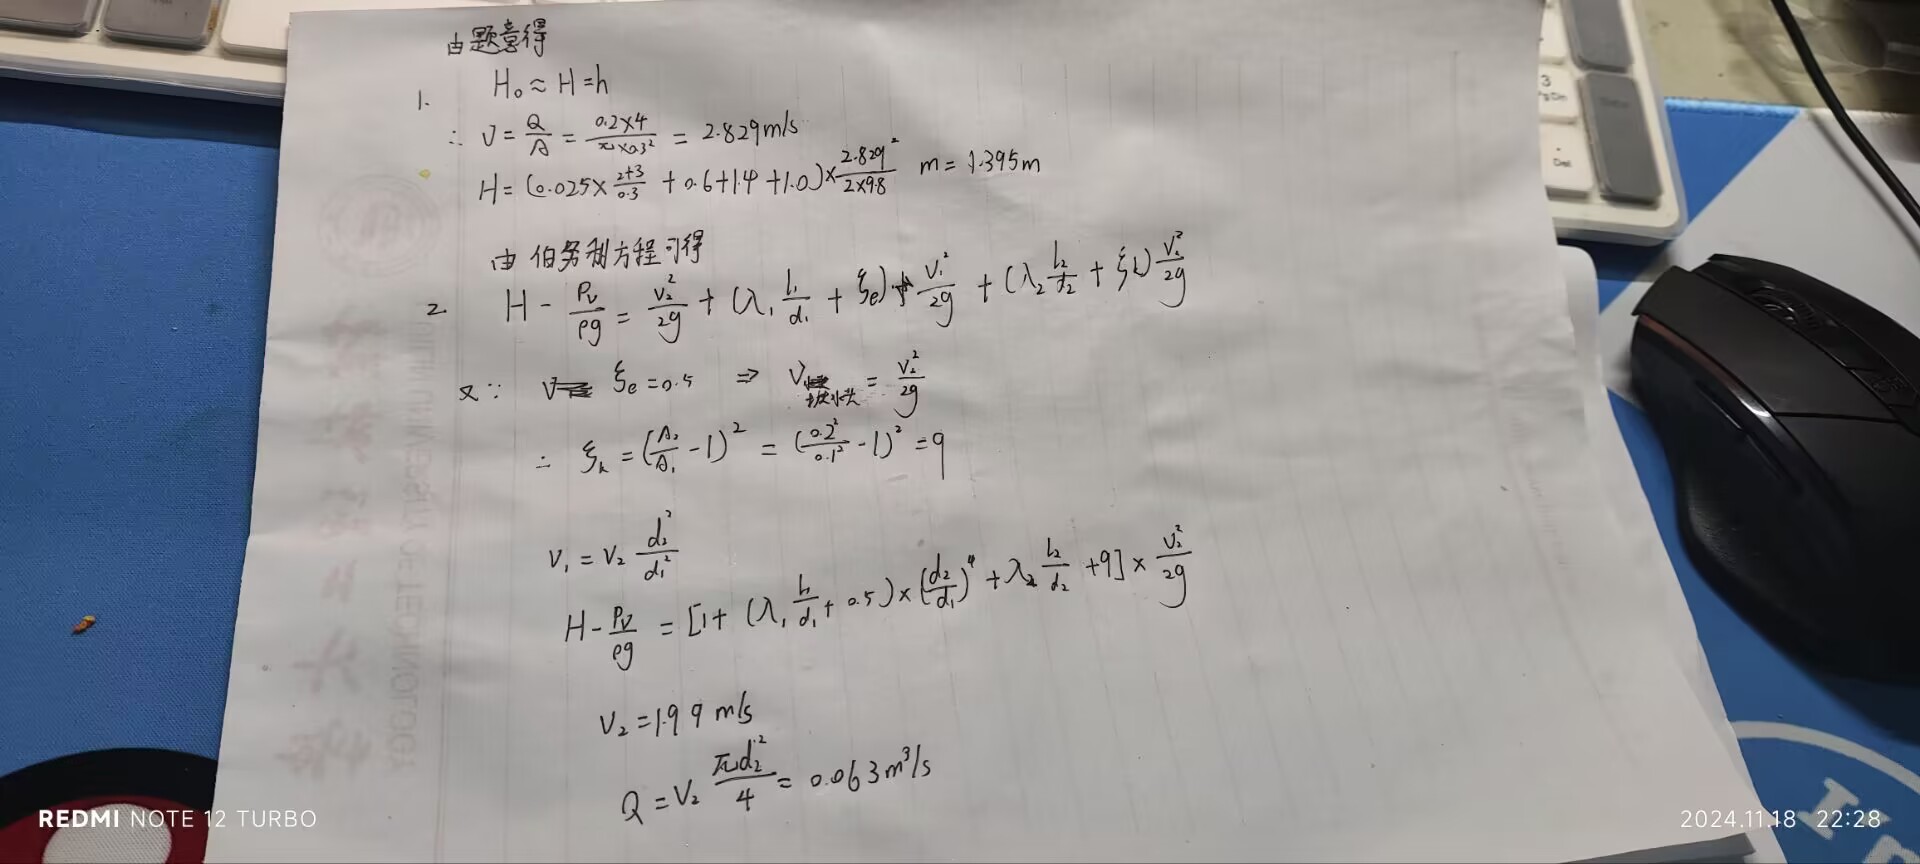 由题意得
1. H₀≈H=h
∴ V=Q/A=0.2×4/π×0.3²=2.829m/s
H=(0.025×2+3/0.3+0.6+1.4+1.0)×2.829²/2×9.8 m=1.395m
由伯努利方程可得
2. H-Pv/ρg=V₂²/2g+(λ₁l₁/d₁+ξe)V₁²/2g+(λ₂l₂/d₂+ξk)V₂²/2g
又∵ ξe=0.5 ⇒ V =V₂²/2g
∴ ξk=(A₂/A₁-1)²=(0.2²/0.1²-1)²=9
V₁=V₂d₂²/d₁²
H-Pv/ρg=[1+(λ₁l₁/d₁+0.5)×(d₂/d₁)⁴+λ₂l₂/d₂+9]×V₂²/2g
V₂=1.99m/s
Q=V₂πd₂²/4=0.063m³/s
REDMI NOTE 12 TURBO
2024.11.18 22:28